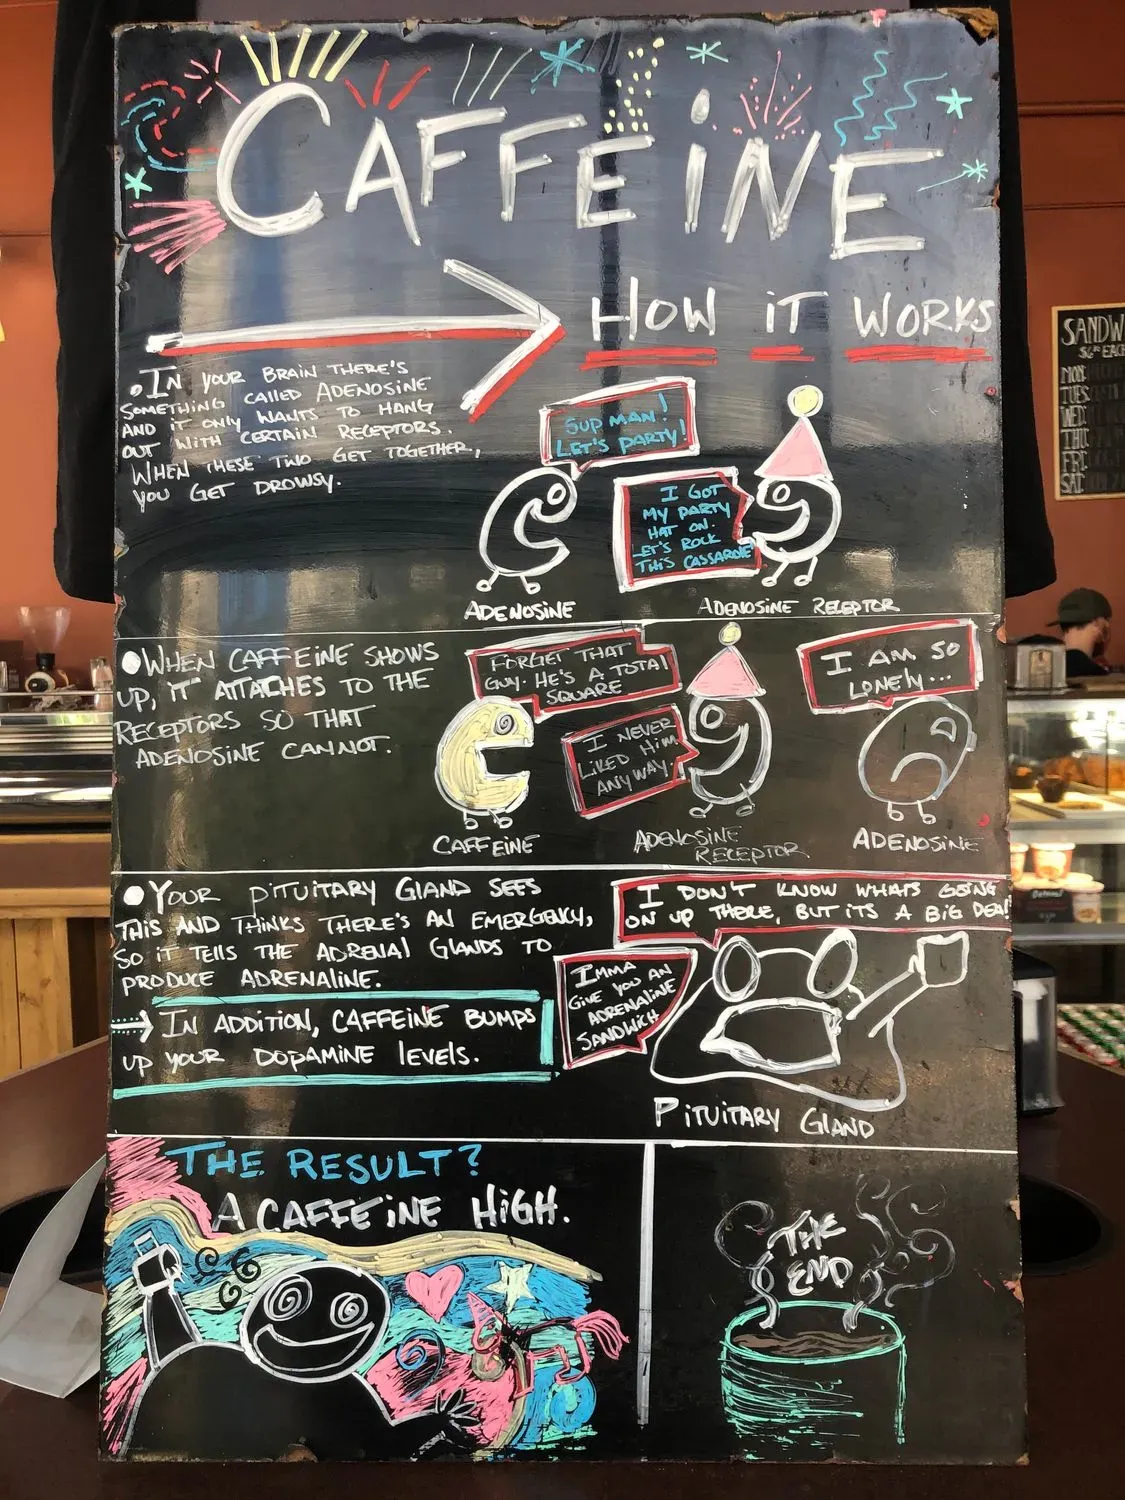 CAFFEiNE
HOW iT WORKS
IN YOUR BRAIN THERE'S
SOMETHING CALLED ADENOSINE
AND IT ONLY WANTS TO HANG
OUT WITH CERTAIN RECEPTORS.
WHEN THESE TWO GET TOGETHER,
YOU GET DROWSY.
SUP MAN!
LET'S PARTY!
I GOT
MY PARTY
HAT ON.
LET'S ROCK
THIS CASSAROLE
ADENOSINE
ADENOSINE RECEPTOR
WHEN CAFFEINE SHOWS
UP, IT ATTACHES TO THE
RECEPTORS SO THAT
ADENOSINE CANNOT.
FORGET THAT
GUY. HE'S A TOTAL
SQUARE
I NEVER
LIKED HIM
ANYWAY.
I AM SO
LONELY...
CAFFEINE
ADENOSINE
RECEPTOR
ADENOSINE
YOUR PITUITARY GLAND SEES
THIS AND THINKS THERE'S AN EMERGENCY,
SO IT TELLS THE ADRENAL GLANDS TO
PRODUCE ADRENALINE.
IN ADDITION, CAFFEINE BUMPS
UP YOUR DOPAMINE LEVELS.
I DON'T KNOW WHATS GOING
ON UP THERE, BUT ITS A BIG DEAL!
IMMA
GIVE YOU AN
ADRENALINE
SANDWICH
PITUITARY GLAND
THE RESULT?
A CAFFEINE HIGH.
THE
END
SANDW
EACH
MON:
TUES:
WED:
THU:
FRI:
SAT: